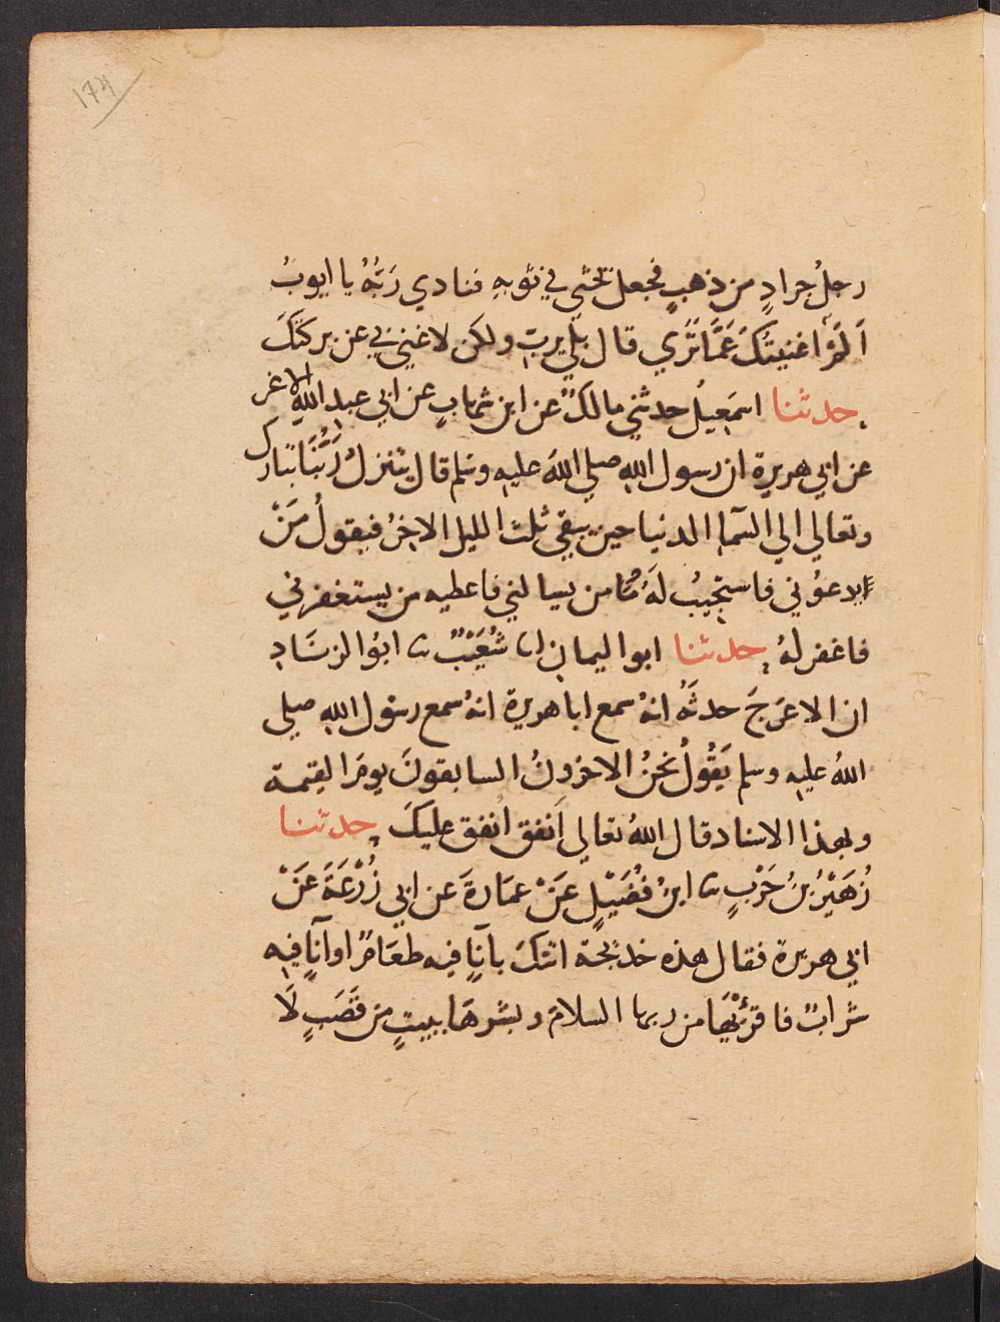 ١٧٤
رجلُ جرادٍ من ذهبٍ فجعل يحثي في ثوبهِ فنادي رَبُّهُ يا ايوبُ
اَلَمْ اغنيتُكَ عَمَّا تَرَي قال بلي يربّ ولكن لا غني بي عن بركتكَ
حدثنا اسمَعيلُ حدثني مالكٌ عن ابن شهابٍ عن ابي عبد الله الاغر
عن ابي هريرة ان رسول اللهِ صلي اللهَ عليهِ وسلم قال يتنزلُ رَبُّنَا تبارك
وتعالي الي السّما الدنيا حين يبقي ثلث الليل الاخرُ فيقولُ مَنْ
يدعوُني فاستجيبُ لَهُ من يسالني فاعطيه من يستغفرني
فاغفر لهُ حدثنا ابوا اليمان انا شُعَيْبٌ نا ابوُا الزنَادِ
ان الاعرَجَ حدثَهُ انهُ سمع ابا هريرة انهُ سمع رسوُل اللهِ صلي
اللهُ عليهِ وسلم يَقُوُلُ نحنُ الاخروُنَ السابقونَ يومَ القيمة
وبهذا الاسناد قال اللهُ تعالي اَنفق اُنفق عليكَ حدثنا
زُهَيْرُ بنُ حَرْبٍ نا ابنُ فُضَيْلٍ عَنْ عمَارةَ عن ابي زُرْعَةَ عَنْ
ابي هريرة فقال هذه خديجة اتتكَ بآنآٍ فيه طعَامٌ او آنآٍ فيهِ
شرابٌ فاقرئْهَا من ربها السلامَ وبشرهَا ببيتٍ من قَصَبٍ لَا